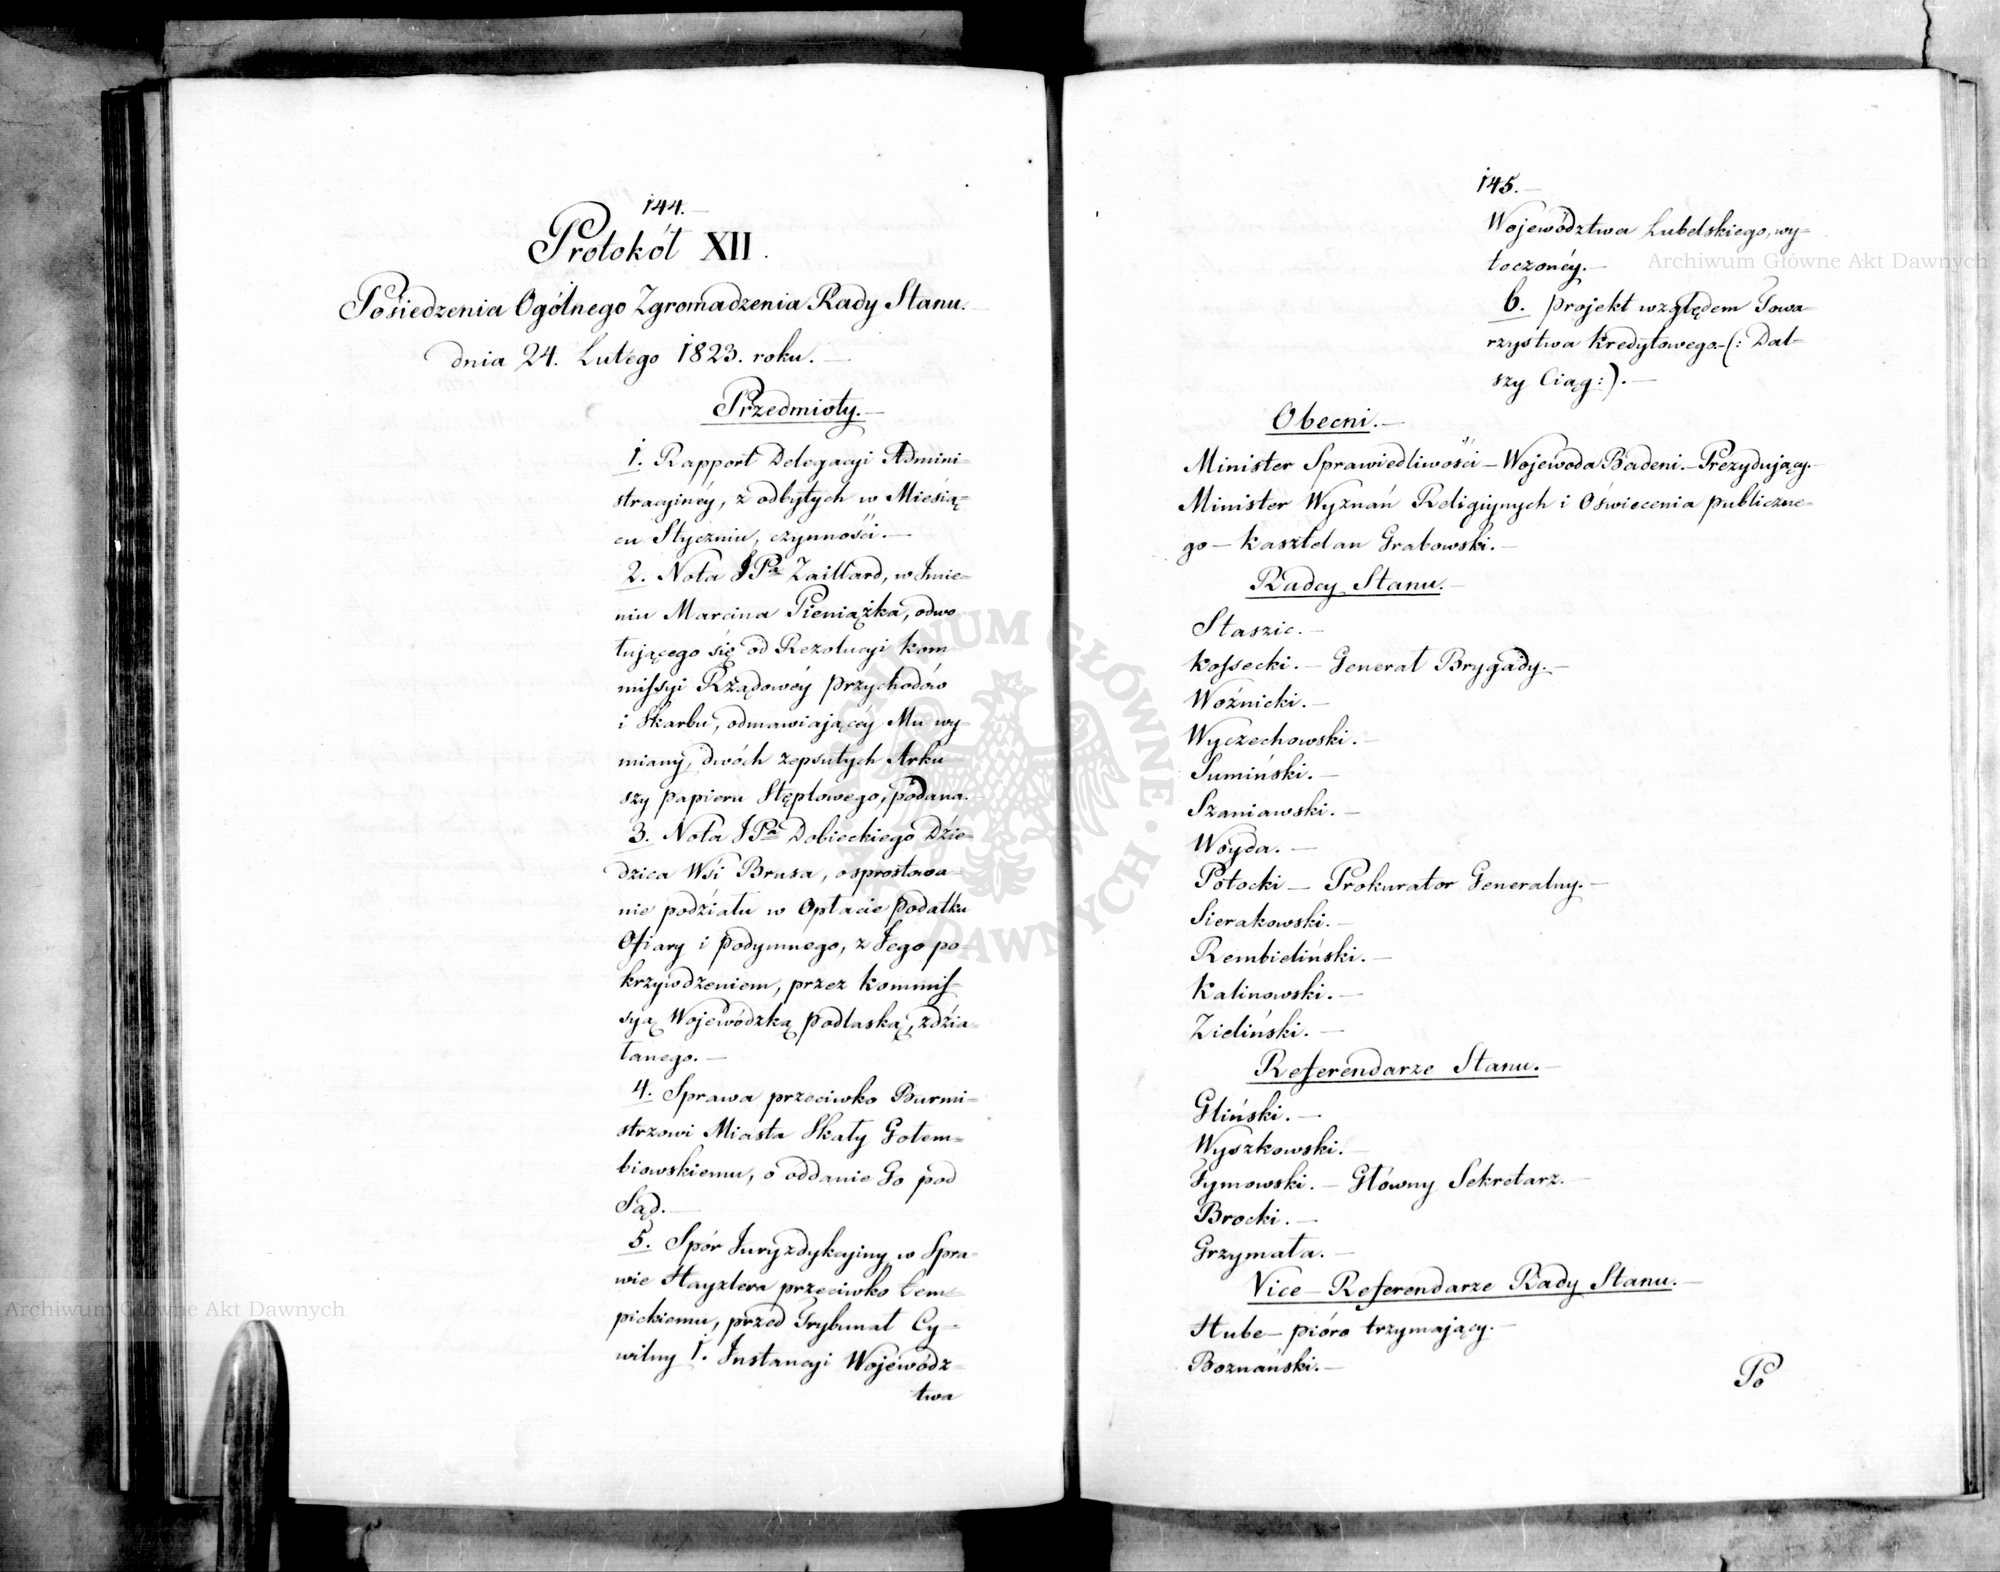 144.
Protokół XII.
Posiedzenia Ogólnego Zgromadzenia Rady Stanu.
dnia 24. Lutego 1823. roku.
Przedmioty.
1. Rapport Delegacyi Admini=
stracyinéy, z odbytych w Miesią=
cu Styczniu, czynności.
2. Nota JPa Zaillard, w Jmie=
niu Marcina Pieniążka, odwo
łującego się od Rezolucyi Kom
missyi Rządowéy Przychodów
i Skarbu, odmawiającéy Mu wy=
miany, dwóch zepsutych Arku
szy papieru Stęplowego, podana.
3. Nota JPa Dobieckiego Dzie=
dzica Wśi Brusa, o sprostowa=
nie podziału w Opłacie Podatku
Ofiary i Podymnego, z Jego po=
krzywdzeniem, przez Kommis=
syą Wojewódzką Podlaską, zdzia=
łanego.
4. Sprawa przeciwko Burmi=
strzowi Miasta Skały Gołem=
biowskiemu, o oddanie Go pod
Sąd.
5. Spór Juryzdykcyiny w Spra=
wie Hayzlera przeciwko Łem=
pickiemu, przed Trybunał Cy=
wilny I. Instancyi Wojewódz=
twa
145.
Województwa Lubelskiego, wy=
toczonéy.
6. Projekt względem Towa=
rzystwa Kredytowego (: Dal=
szy Ciąg :).
Obecni.
Minister Sprawiedliwości – Wojewoda Badeni. – Prezydujący.
Minister Wyznań Religiynych i Oświecenia publiczne=
go – Kasztelan Grabowski.
Radcy Stanu.
Staszic.
Kossecki. – Generał Brygady.
Woźnicki.
Wyczechowski.
Sumiński.
Szaniawski.
Woyda.
Potocki – Prokurator Generalny.
Sierakowski.
Rembieliński.
Kalinowski.
Zieliński.
Referendarze Stanu.
Gliński.
Wyszkowski.
Tymowski. – Główny Sekretarz.
Brocki.
Grzymała.
Vice – Referendarze Rady Stanu.
Hube – pióro trzymający.
Boznański.
Po
Archiwum Główne Akt Dawnych
Archiwum Główne Akt Dawnych
ARCHIWUM GŁÓWNE AKT DAWNYCH